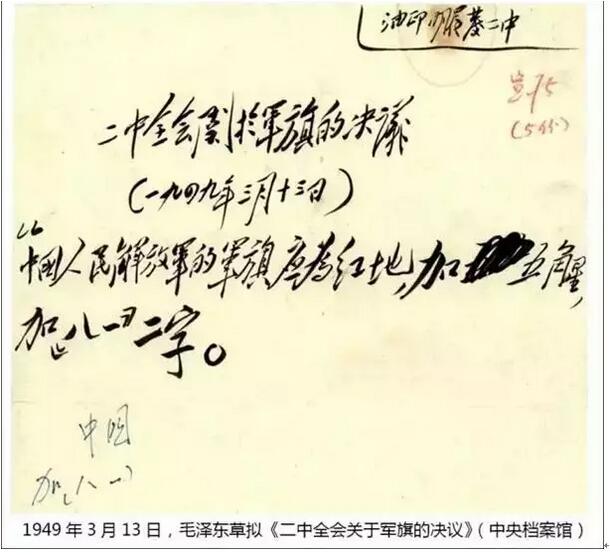 油印 二中
75
(5份)
二中全会關於軍旗的决議
(一九四九年三月十三日)
中國人民解放軍的軍旗應為紅地,加五角星,
加「八一」二字。
中国
加八一
1949年3月13日,毛泽东草拟《二中全会关于军旗的决议》(中央档案馆)